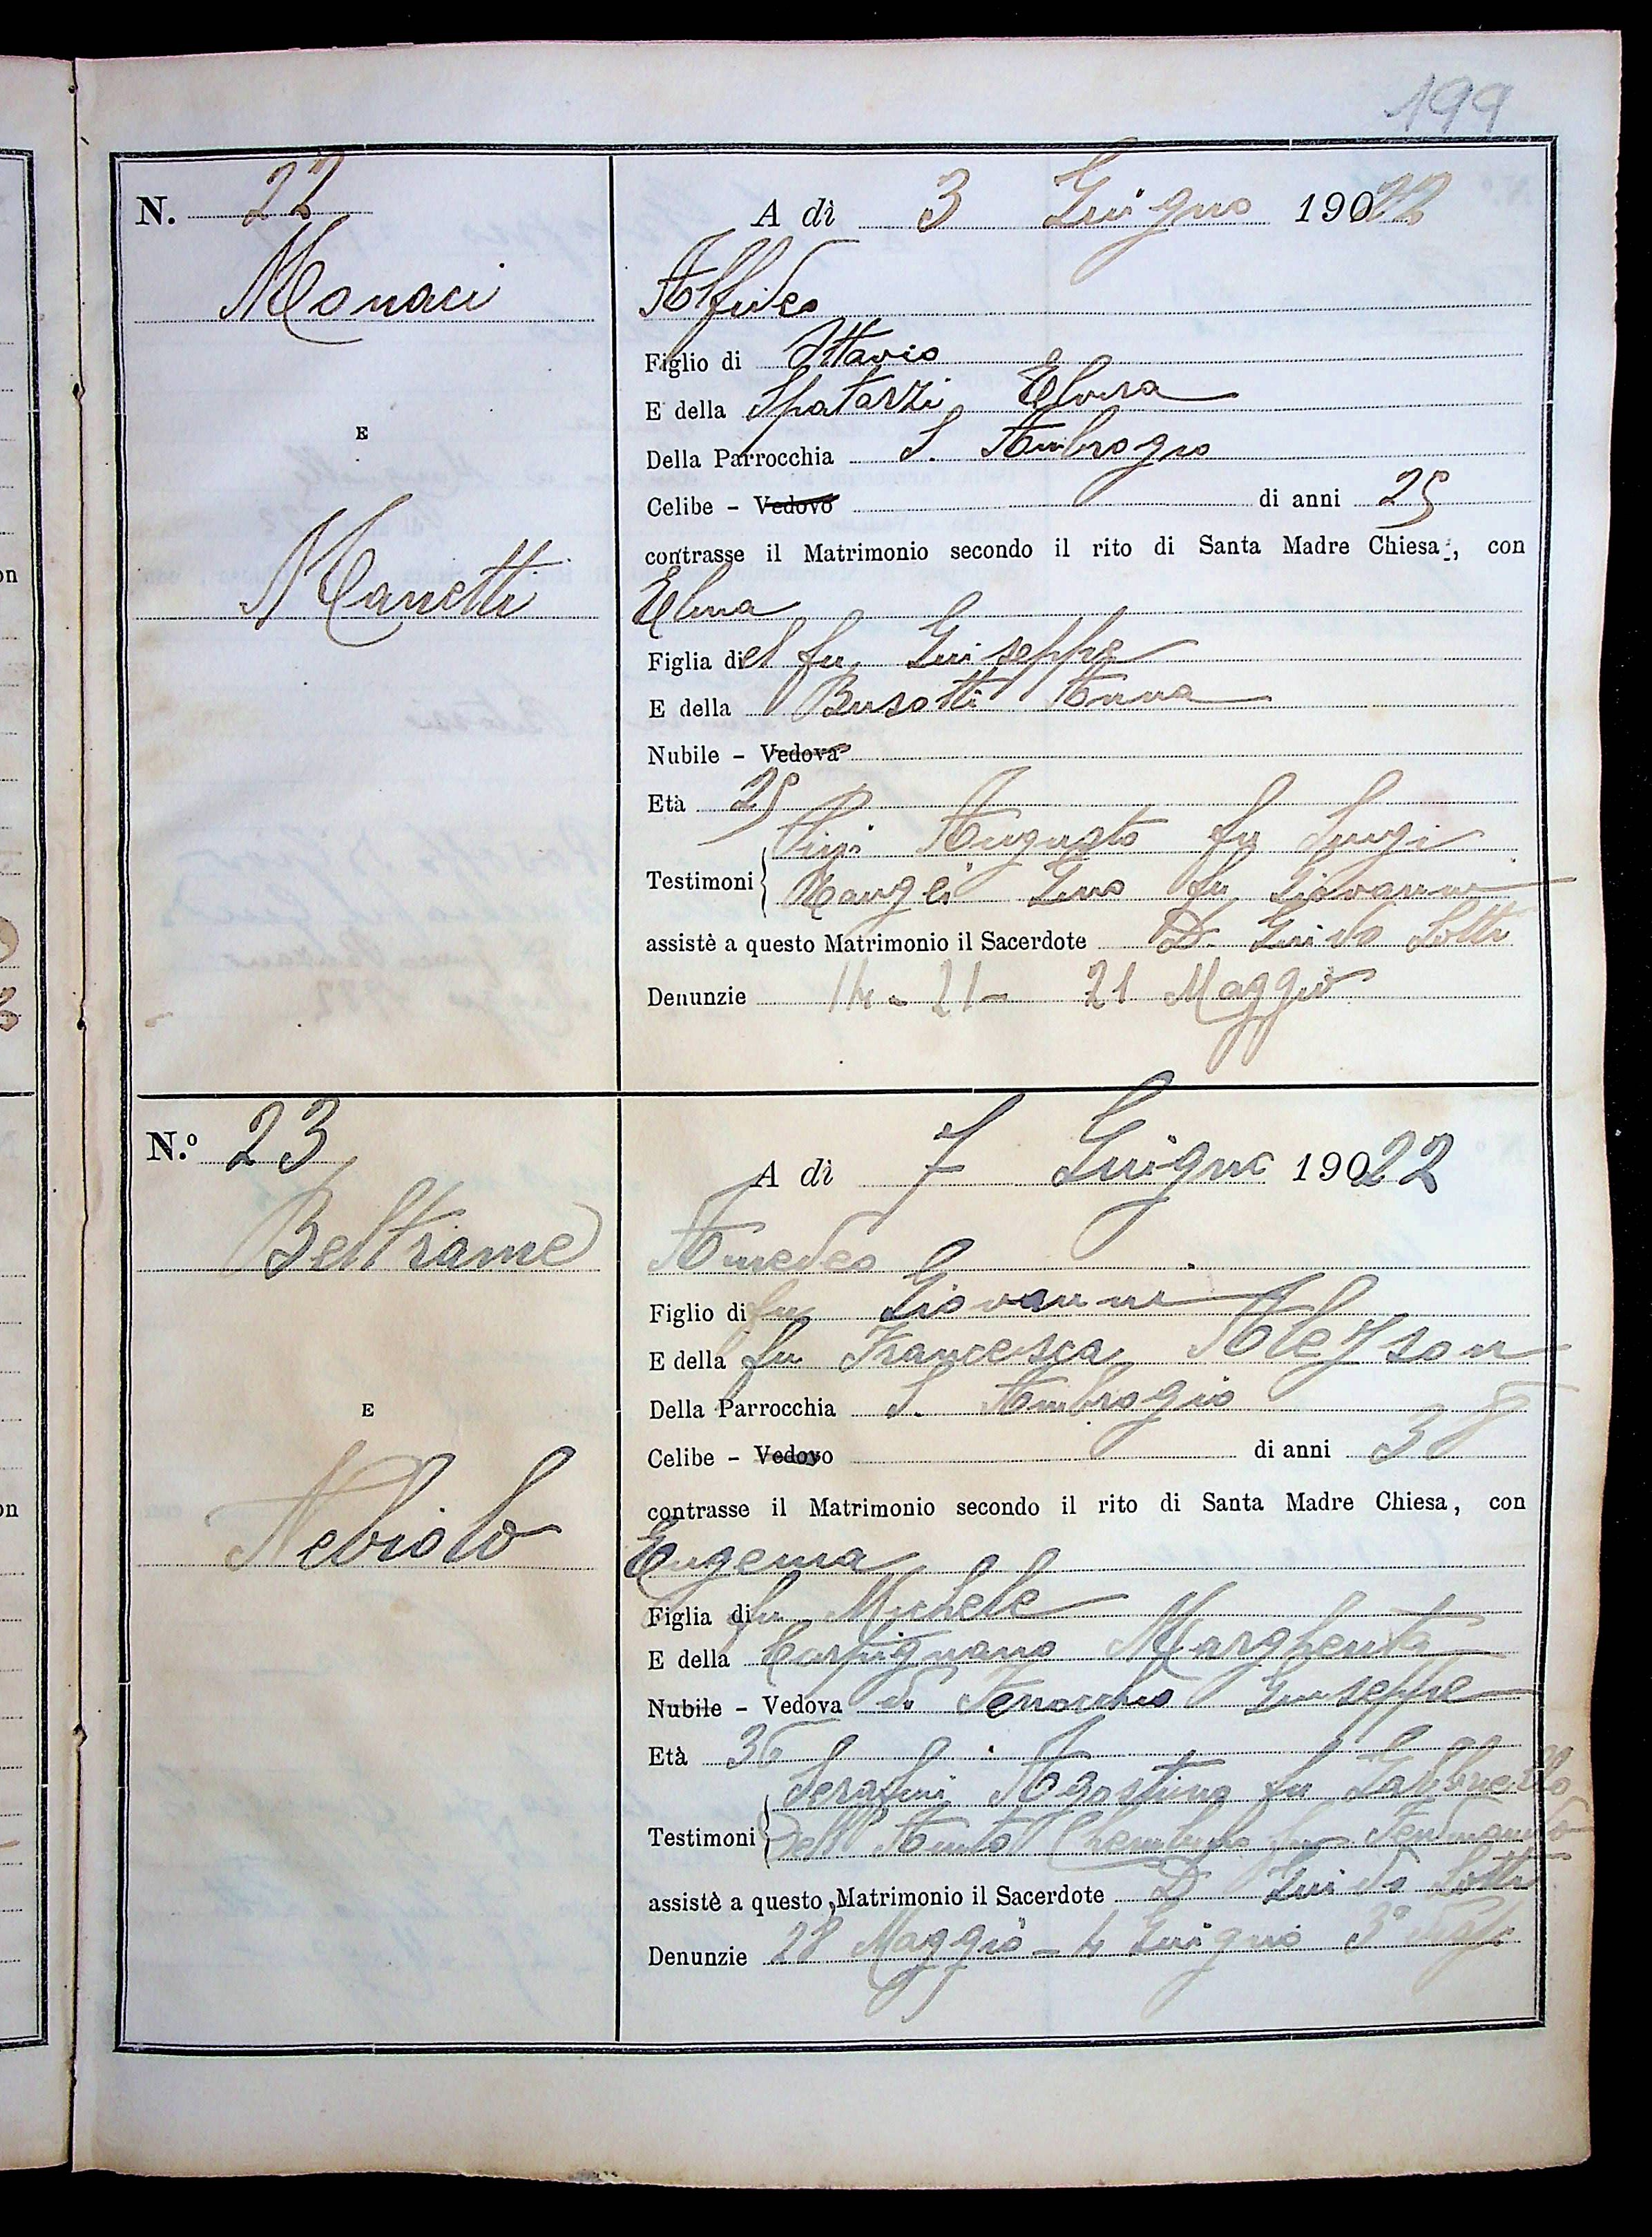 199
N. 22
A dì 3 Giugno 19022
Monaci
Alfideo
Figlio di Ottavio
E della Spatarzi Elvira
E
Della Parrocchia S. Ambrogio
Celibe - Vedovo di anni 25
contrasse il Matrimonio secondo il rito di Santa Madre Chiesa, con
Manetti
Elina
Figlia del fu Giuseppe
E della Busotti Anna
Nubile - Vedova
Età 25
Augusto fu Luigi
Testimoni Gino fu Giovanni
assistè a questo Matrimonio il Sacerdote D. Guido Lotti
Denunzie 14 - 21 - 21 Maggio
N.º 23
A dì 7 Giugno 19022
Beltrame
Amedeo
Figlio di fu Giovanni
E della fu Francesca Aleyson
Della Parrocchia S. Ambrogio
E
Celibe - Vedovo di anni 38
contrasse il Matrimonio secondo il rito di Santa Madre Chiesa, con
Nebiolo
Eugenia
Figlia di fu Michele
E della Carpignano Margherita
Nubile - Vedova di Giuseppe
Età 36
Serafini Agostino fu
Testimoni Dell' fu Ferdinando
assistè a questo Matrimonio il Sacerdote D Guido Lotti
Denunzie 28 Maggio - 4 Giugno 3ª